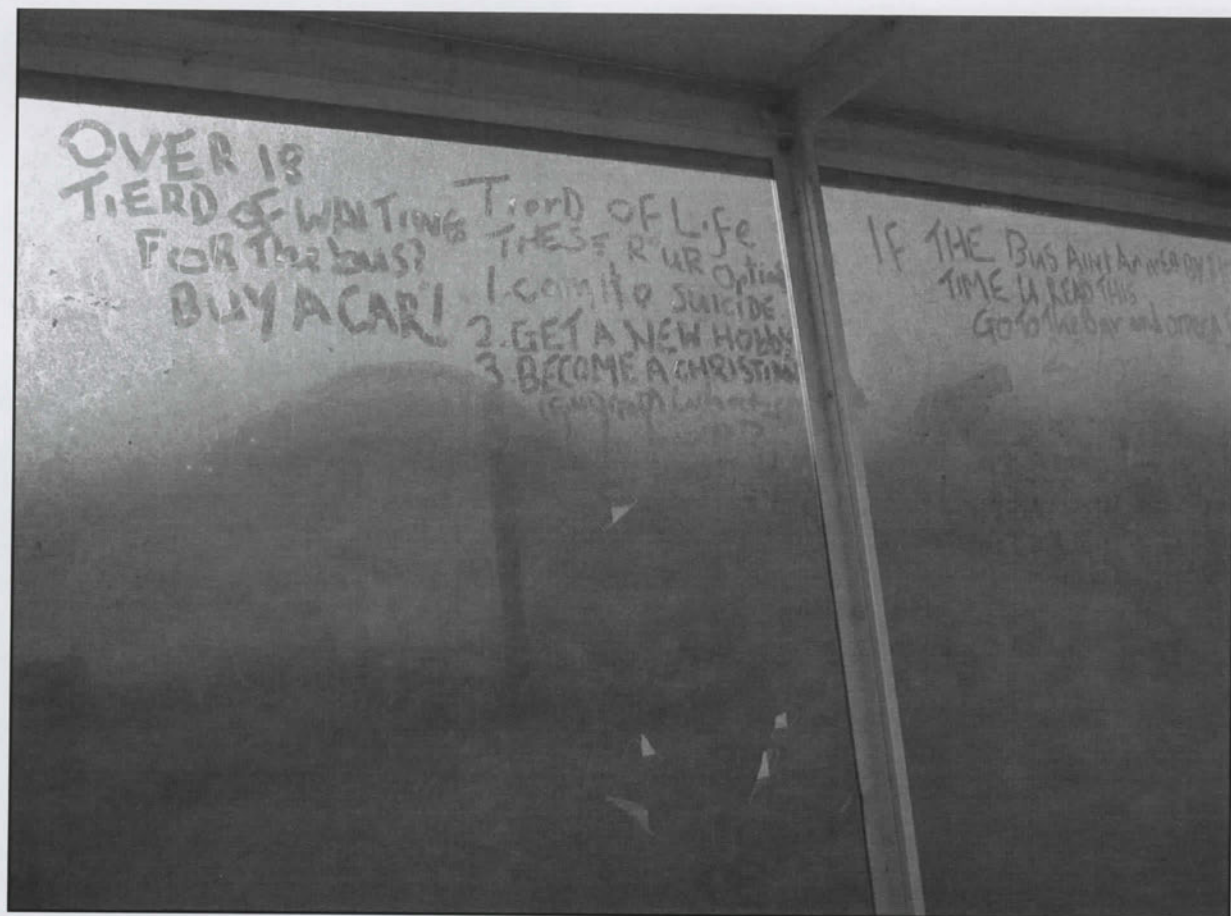 OVER 18
TIERD OF WAITING
FOR The bus?
BUY A CAR!
TierD OF Life
THESE R UR
1. comit o SUICIDE
2. GET A NEW HOBBY
3. BECOME A CHRISTIAN
IF THE BUS AINT BY
TIME U READ THIS
GO TO The Bar and